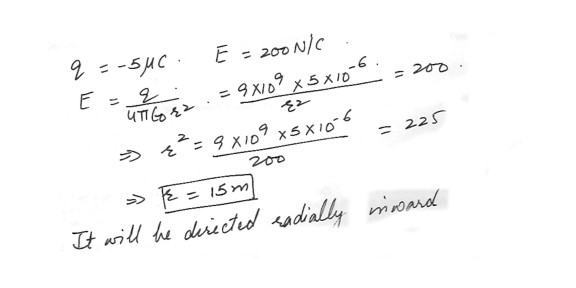 q = -5μC. E = 200N/C.
E = q/4πϵ0 r² = 9×10⁹ × 5×10⁻⁶/r² = 200.
⇒ r² = 9×10⁹ × 5×10⁻⁶/200 = 225
⇒ r = 15m
It will be directed radially inward